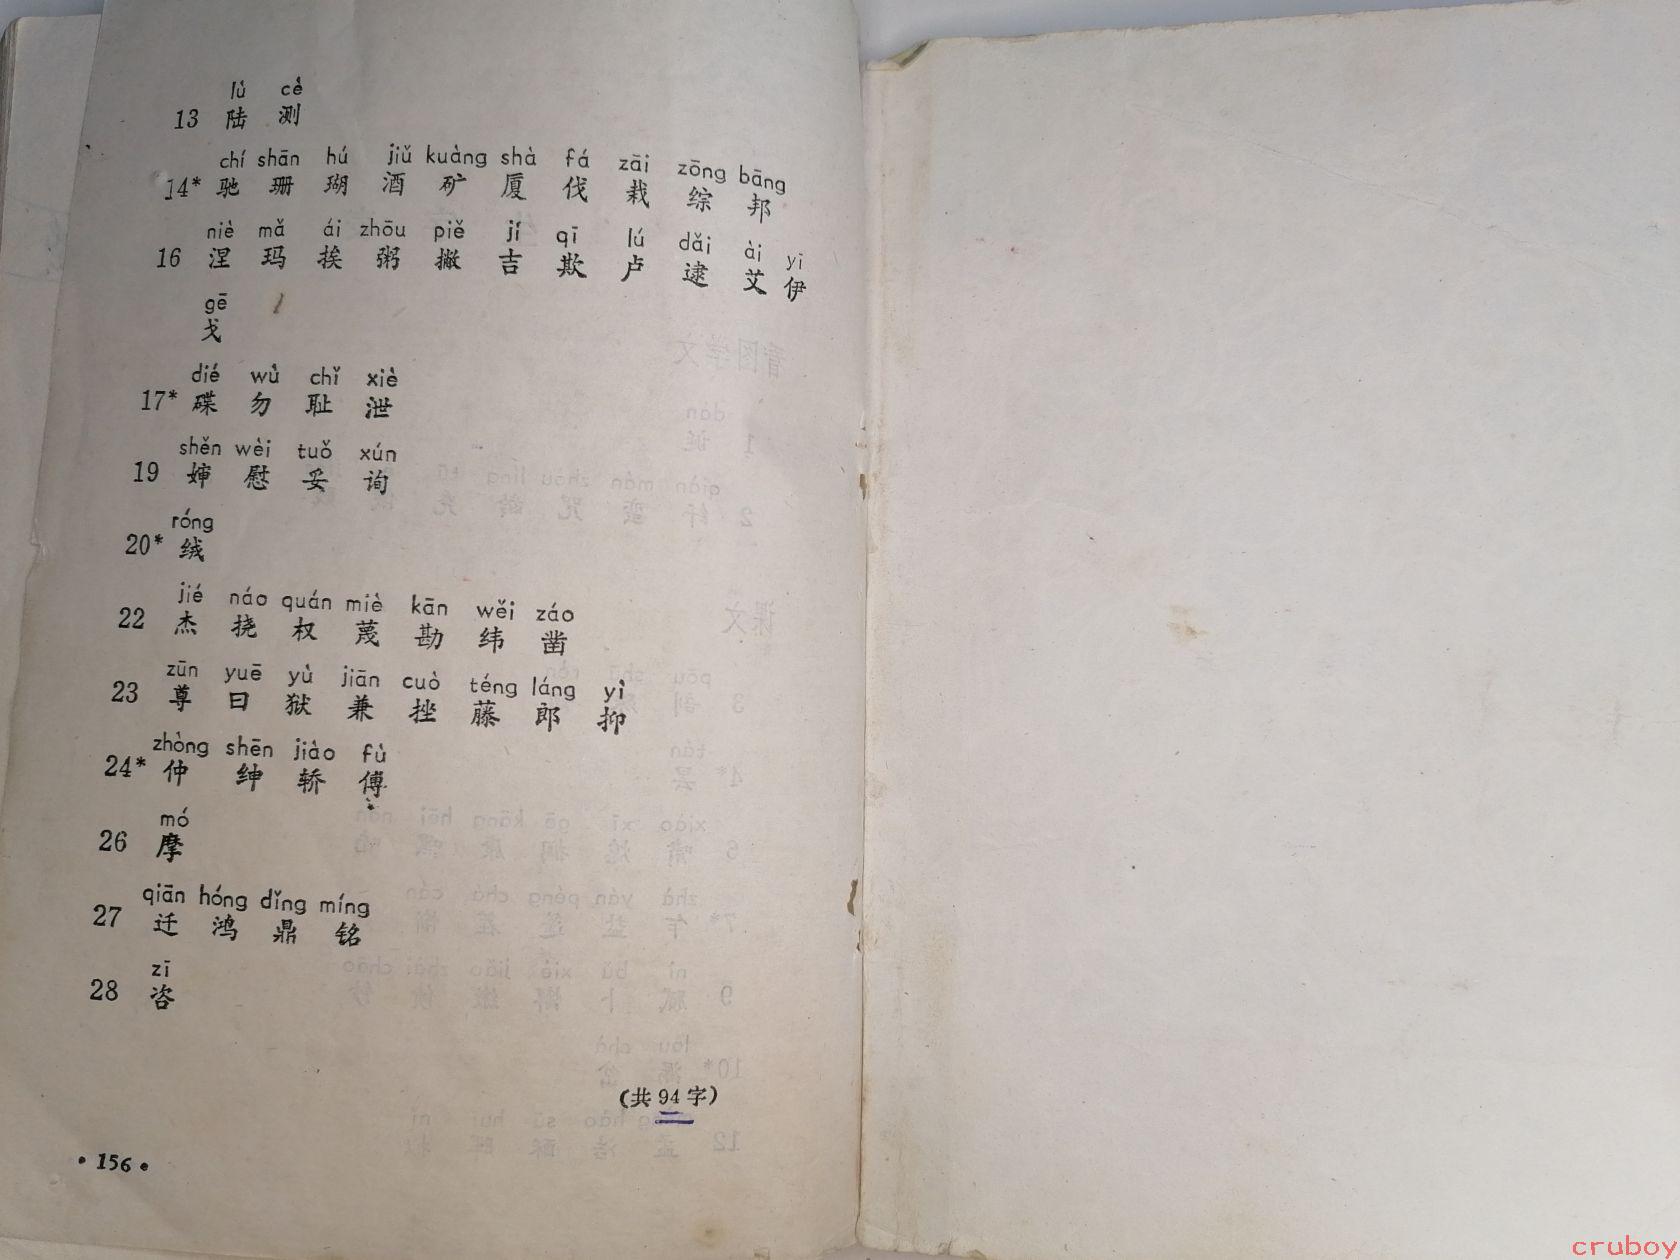 lù cè
13 陆 测
chí shān hú jiǔ kuàng shà fá zāi zōng bāng
14* 驰 珊 瑚 酒 矿 厦 伐 栽 综 邦
niè mǎ ái zhōu piě jí qī lú dǎi ài yī
16 涅 玛 挨 粥 撇 吉 欺 卢 逮 艾 伊
gē
戈
dié wù chǐ xiè
17* 碟 勿 耻 泄
shěn wèi tuǒ xún
19 婶 慰 妥 询
róng
20* 绒
jié náo quán miè kān wěi záo
22 杰 挠 权 蔑 勘 纬 凿
zūn yuē yù jiān cuò téng láng yì
23 尊 曰 狱 兼 挫 藤 郎 抑
zhòng shēn jiào fù
24* 仲 绅 轿 傅
mó
26 摩
qiān hóng dǐng míng
27 迁 鸿 鼎 铭
zī
28 咨
(共 94 字)
• 156 •
cruboy